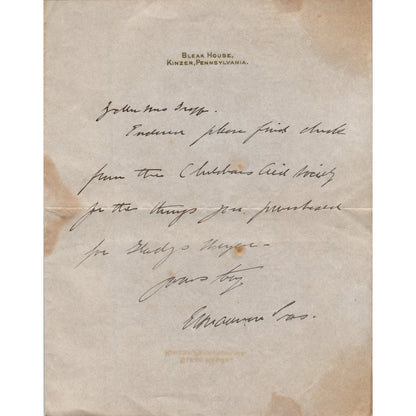 BLEAK HOUSE,
KINZER, PENNSYLVANIA.
Mrs
Enclosed please find check
from the Childrens Aid Society
for the things you purchased
for Gladys
yours truly